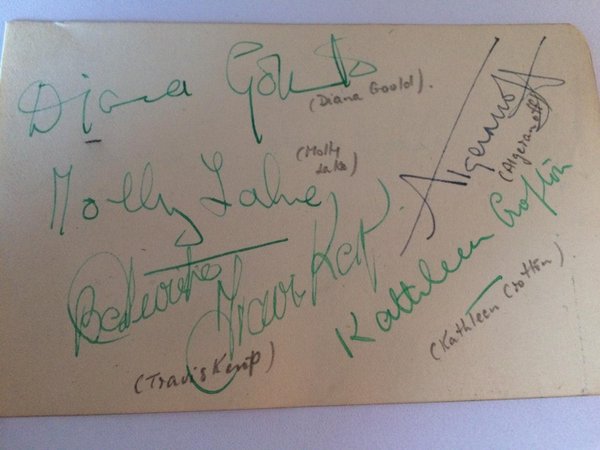 Diana Gould
(Diana Goold).
Algeranoff
(Algeranoff)
Molly Lake
(Molly
Lake)
Travis Kemp
(Travis Kemp)
Kathleen Crofton
(Kathleen Crofton).